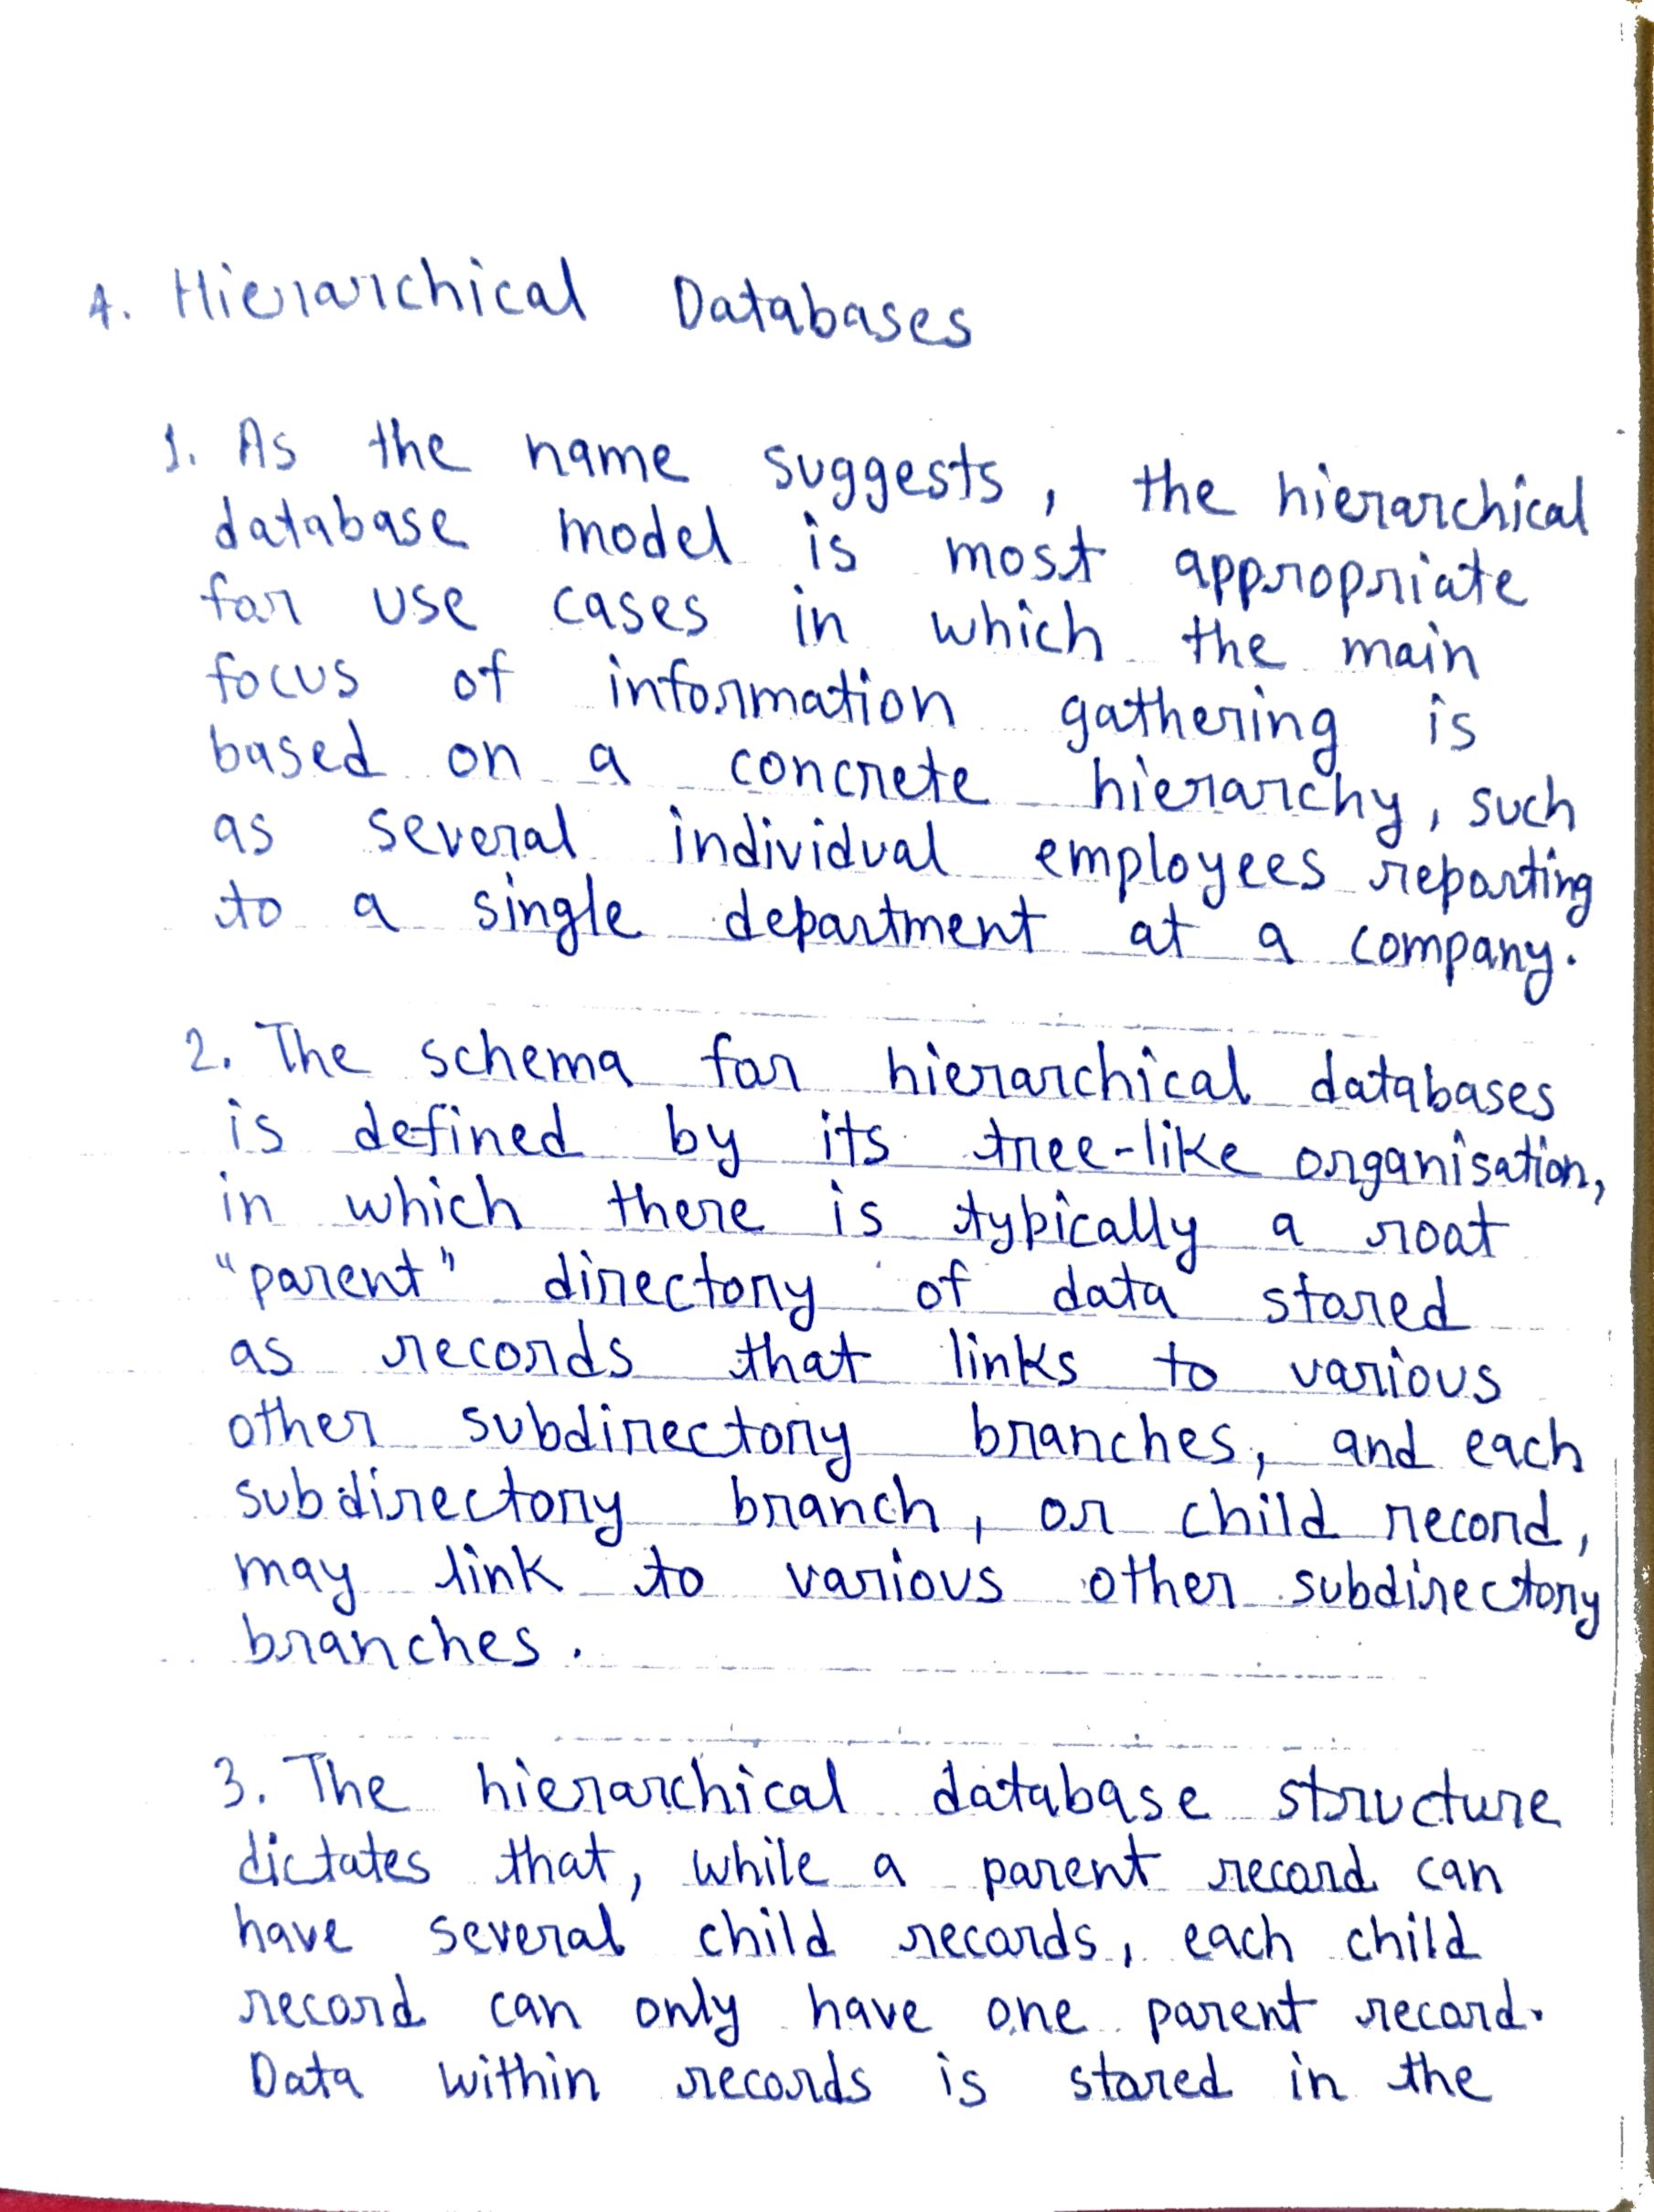 A. Hierarchical Databases
1. As the name suggests, the hierarchical
database model is most appropriate
for use cases in which the main
focus of information gathering is
based on a concrete hierarchy, such
as several individual employees reporting
to a single department at a company.
2. The schema for hierarchical databases
is defined by its tree-like organisation,
in which there is typically a root
"parent" directory of data stored
as records that links to various
other subdirectory branches, and each
subdirectory branch, or child record,
may link to various other subdirectory
branches.
3. The hierarchical database structure
dictates that, while a parent record can
have several child records, each child
record can only have one parent record.
Data within records is stored in the